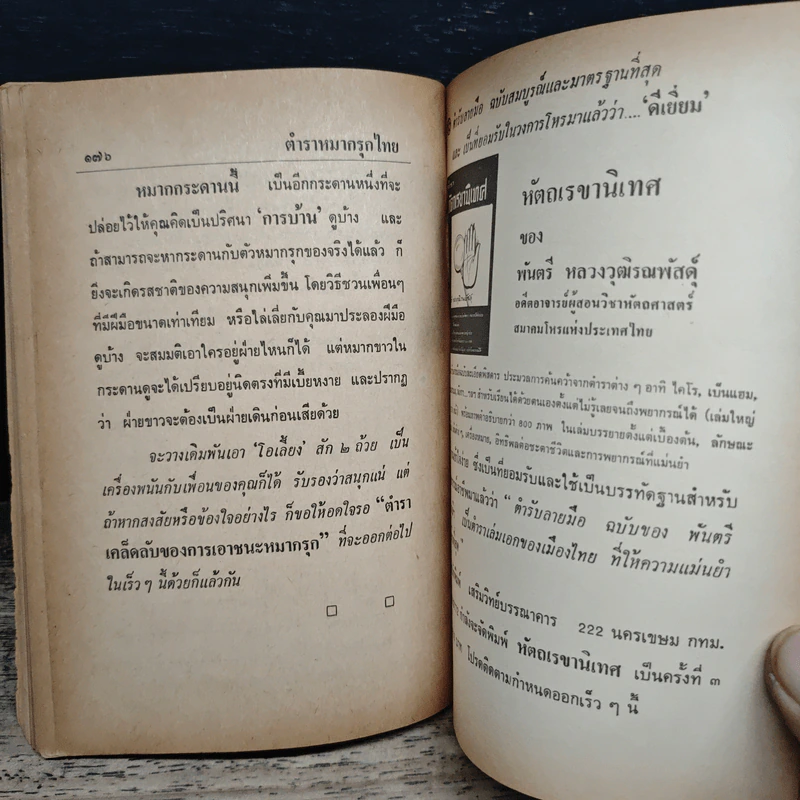 ๑๗๖ ตำราหมากรุกไทย
หมากกระดานนี้ เป็นอีกกระดานหนึ่งที่จะ
ปล่อยไว้ให้คุณคิดเป็นปริศนา ‘การบ้าน’ ดูบ้าง และ
ถ้าสามารถจะหากระดานกับตัวหมากรุกของจริงได้แล้ว ก็
ยิ่งจะเกิดรสชาติของความสนุกเพิ่มขึ้น โดยวิธีชวนเพื่อนๆ
ที่มีฝีมือขนาดเท่าเทียม หรือไล่เลี่ยกับคุณมาประลองฝีมือ
ดูบ้าง จะสมมติเอาใครอยู่ฝ่ายไหนก็ได้ แต่หมากขาวใน
กระดานดูจะได้เปรียบอยู่นิดตรงที่มีเบี้ยหงาย และปรากฏ
ว่า ฝ่ายขาวจะต้องเป็นฝ่ายเดินก่อนเสียด้วย
จะวางเดิมพันเอา ‘โอเลี้ยง’ สัก ๒ ถ้วย เป็น
เครื่องพนันกับเพื่อนของคุณก็ได้ รับรองว่าสนุกแน่ แต่
ถ้าหากสงสัยหรือข้องใจอย่างไร ก็ขอให้อดใจรอ “ตำรา
เคล็ดลับของการเอาชนะหมากรุก” ที่จะออกต่อไป
ในเร็ว ๆ นี้ด้วยก็แล้วกัน
ฉบับสมบูรณ์และมาตรฐานที่สุด
และ เป็นที่ยอมรับในวงการโหรมาแล้วว่า.... ‘ดีเยี่ยม’
หัตถเรขานิเทศ
ของ
พันตรี หลวงวุฒิรณพัสดุ์
อดีตอาจารย์ผู้สอนวิชาหัตถศาสตร์
สมาคมโหรแห่งประเทศไทย
ประมวลการค้นคว้าจากตำราต่าง ๆ อาทิ ไคโร, เบ็นแฮม,
สำหรับเรียนได้ด้วยตนเองตั้งแต่ไม่รู้เลยจนถึงพยากรณ์ได้ (เล่มใหญ่
พร้อมภาพคำอธิบายกว่า 800 ภาพ ในเล่มบรรยายตั้งแต่เบื้องต้น, ลักษณะ
เครื่องหมาย, อิทธิพลต่อชะตาชีวิตและการพยากรณ์ที่แม่นยำ
ซึ่งเป็นที่ยอมรับและใช้เป็นบรรทัดฐานสำหรับ
มาแล้วว่า “ตำรับลายมือ ฉบับของ พันตรี
เป็นตำราเล่มเอกของเมืองไทย ที่ให้ความแม่นยำ
เสริมวิทย์บรรณาคาร 222 นครเขษม กทม.
กำลังจะจัดพิมพ์ หัตถเรขานิเทศ เป็นครั้งที่ ๓
โปรดติดตามกำหนดออกเร็ว ๆ นี้